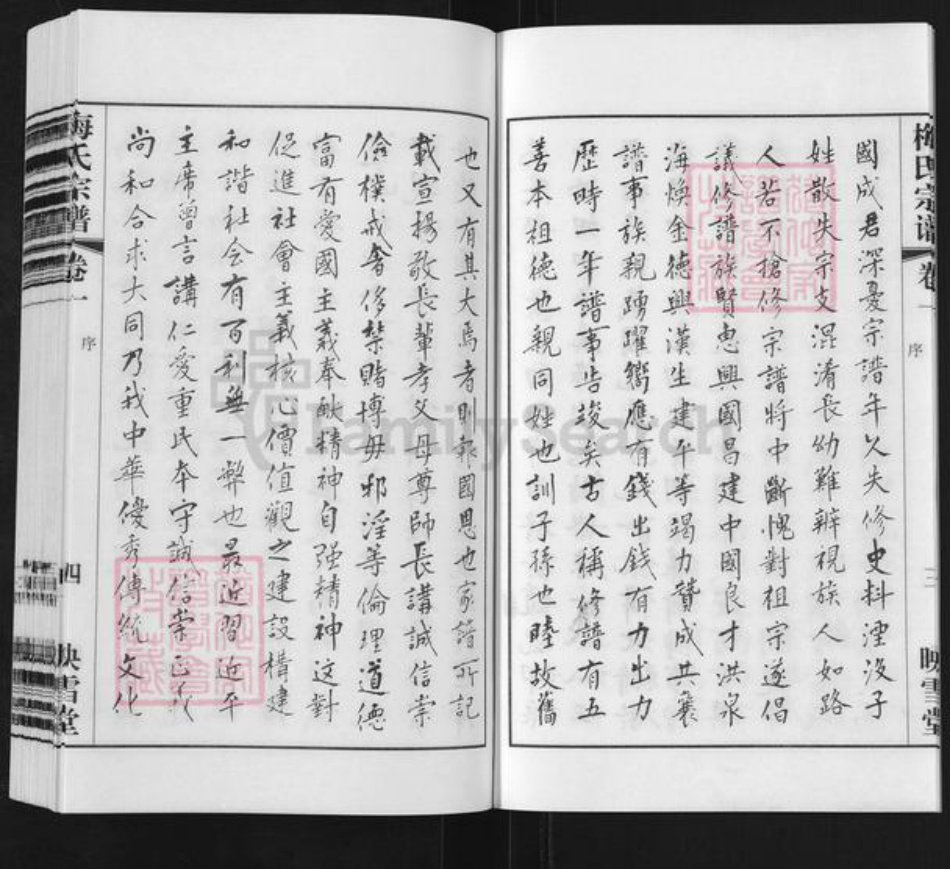 梅氏宗谱
卷一
序
三
映雪堂
國成君深憂宗譜年久失修史料湮沒子
姓散失宗支混淆長幼難辨視族人如路
人若不搶修宗譜將中斷愧對祖宗遂倡
議修譜族賢惠興國昌建中國良才洪泉
海煥金德興漢生建午等竭力贊成共襄
譜事族親踴躍嚮應有錢出錢有力出力
歷時一年譜事告竣矣古人稱修譜有五
善本祖德也親同姓也訓子孫也睦故舊
也又有其大焉者則報國恩也家譜所記
載宣揚敬長輩孝父母尊師長講誠信崇
儉樸戒奢侈禁賭博毋邪淫等倫理道德
富有愛國主義奉献精神自强精神这對
促進社會主義核心價值觀之建設構建
和諧社会有百利無一弊也最近習近平
主席曾言講仁愛重民本守誠信崇正義
尚和合求大同乃我中華優秀傳統文化
梅氏宗譜
卷一
序
四
映雪堂
FamilySearch